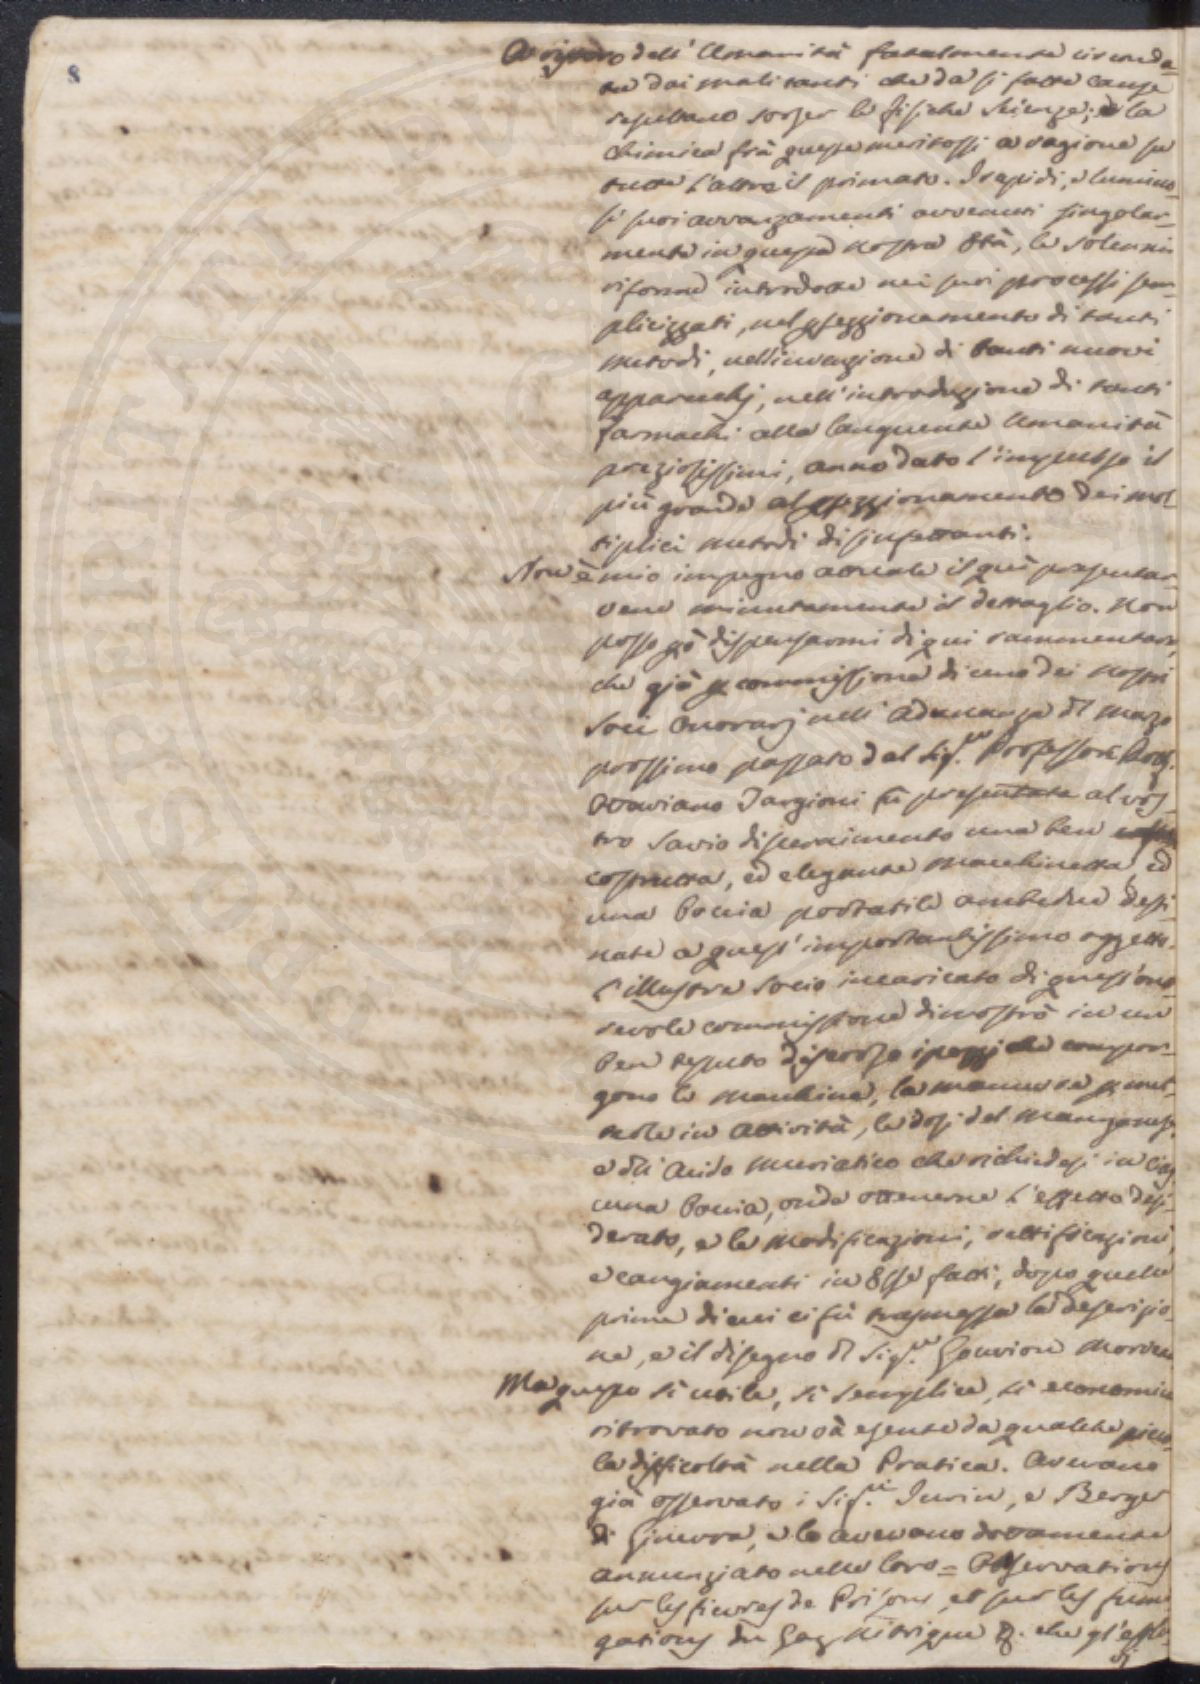 8
A riparo dell' Umanità fatalmente circonda-
ta dai mali tanti che da si fatte cause
resultano sorger le fisiche scienze; e la
Chimica frà queste meritossi a ragione su
tutte l'altre il primato. I rapidi, e lumino-
si suoi avanzamenti avvenuti singolar-
mente in questa nostra Età, le solenni
riforme introdotte nei suoi processi sem-
plicizzati, nel pfezzionamento di tanti
metodi, nell'invenzione di tanti nuovi
apparecchj, nell'introduzione di tanti
farmachi alla languente Umanità
preziosissimi, anno dato l'impulso il
più grande al pfezzionamento dei mol-
tiplici metodi disinfettanti.
Non è mio impegno attuale il quì presentar-
vene minutamente il dettaglio. Non
posso pò dispensarmi di qui rammentare,
che già p commissione di uno dei nostri
Socii Onorarj nell' Adunanza di Marzo
prossimo passato dal Sig.re Professore
Ottaviano Targioni fù presentata al vos-
tro savio discernimento una ben
costrutta, ed elegante macchinetta, ed
una boccia portatile ambedue desti-
nate a quest' importantissimo oggetto.
L'illustre Socio incaricato di quest'ono-
revole commissione dimostrò in un
ben tessuto discorso i pezzi che compon-
gono la macchina, la maniera p met-
terle in attività, le dosi del Manganese,
e dll' Acido Muriatico che richiedesi in cias-
cuna boccia, onde ottenerne l'effetto desi-
derato, e le modificazioni, rettificazioni,
e cangiamenti in Esse fatti, dopo quelle
prime di cui ci fù trasmessa la descrizio-
ne, e il disegno dl Sig.re Gouvion Morveau
Ma questo sì utile, sì semplice, sì economico
ritrovato non và esente da qualche picco-
la difficoltà nella Pratica. Avevano
già osservato i Sig.ri Jurin, e Berger
di Ginevra, e lo avevano dottamente
annunziato nelle loro = Observations
sur les fievres de Prisons, et sur les fumi-
gations du Gaz Nitrique &. che gl'effe-